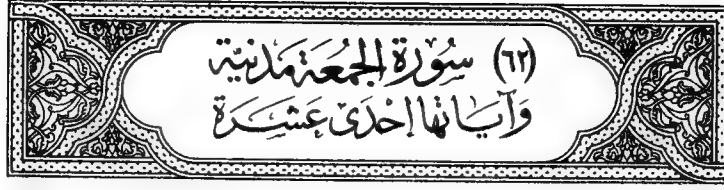 (٦٢) سُورَةُ الْجُمُعَةِ مَدَنِيَّة
وَآيَاتُهَا إِحْدَىٰ عَشَرَة